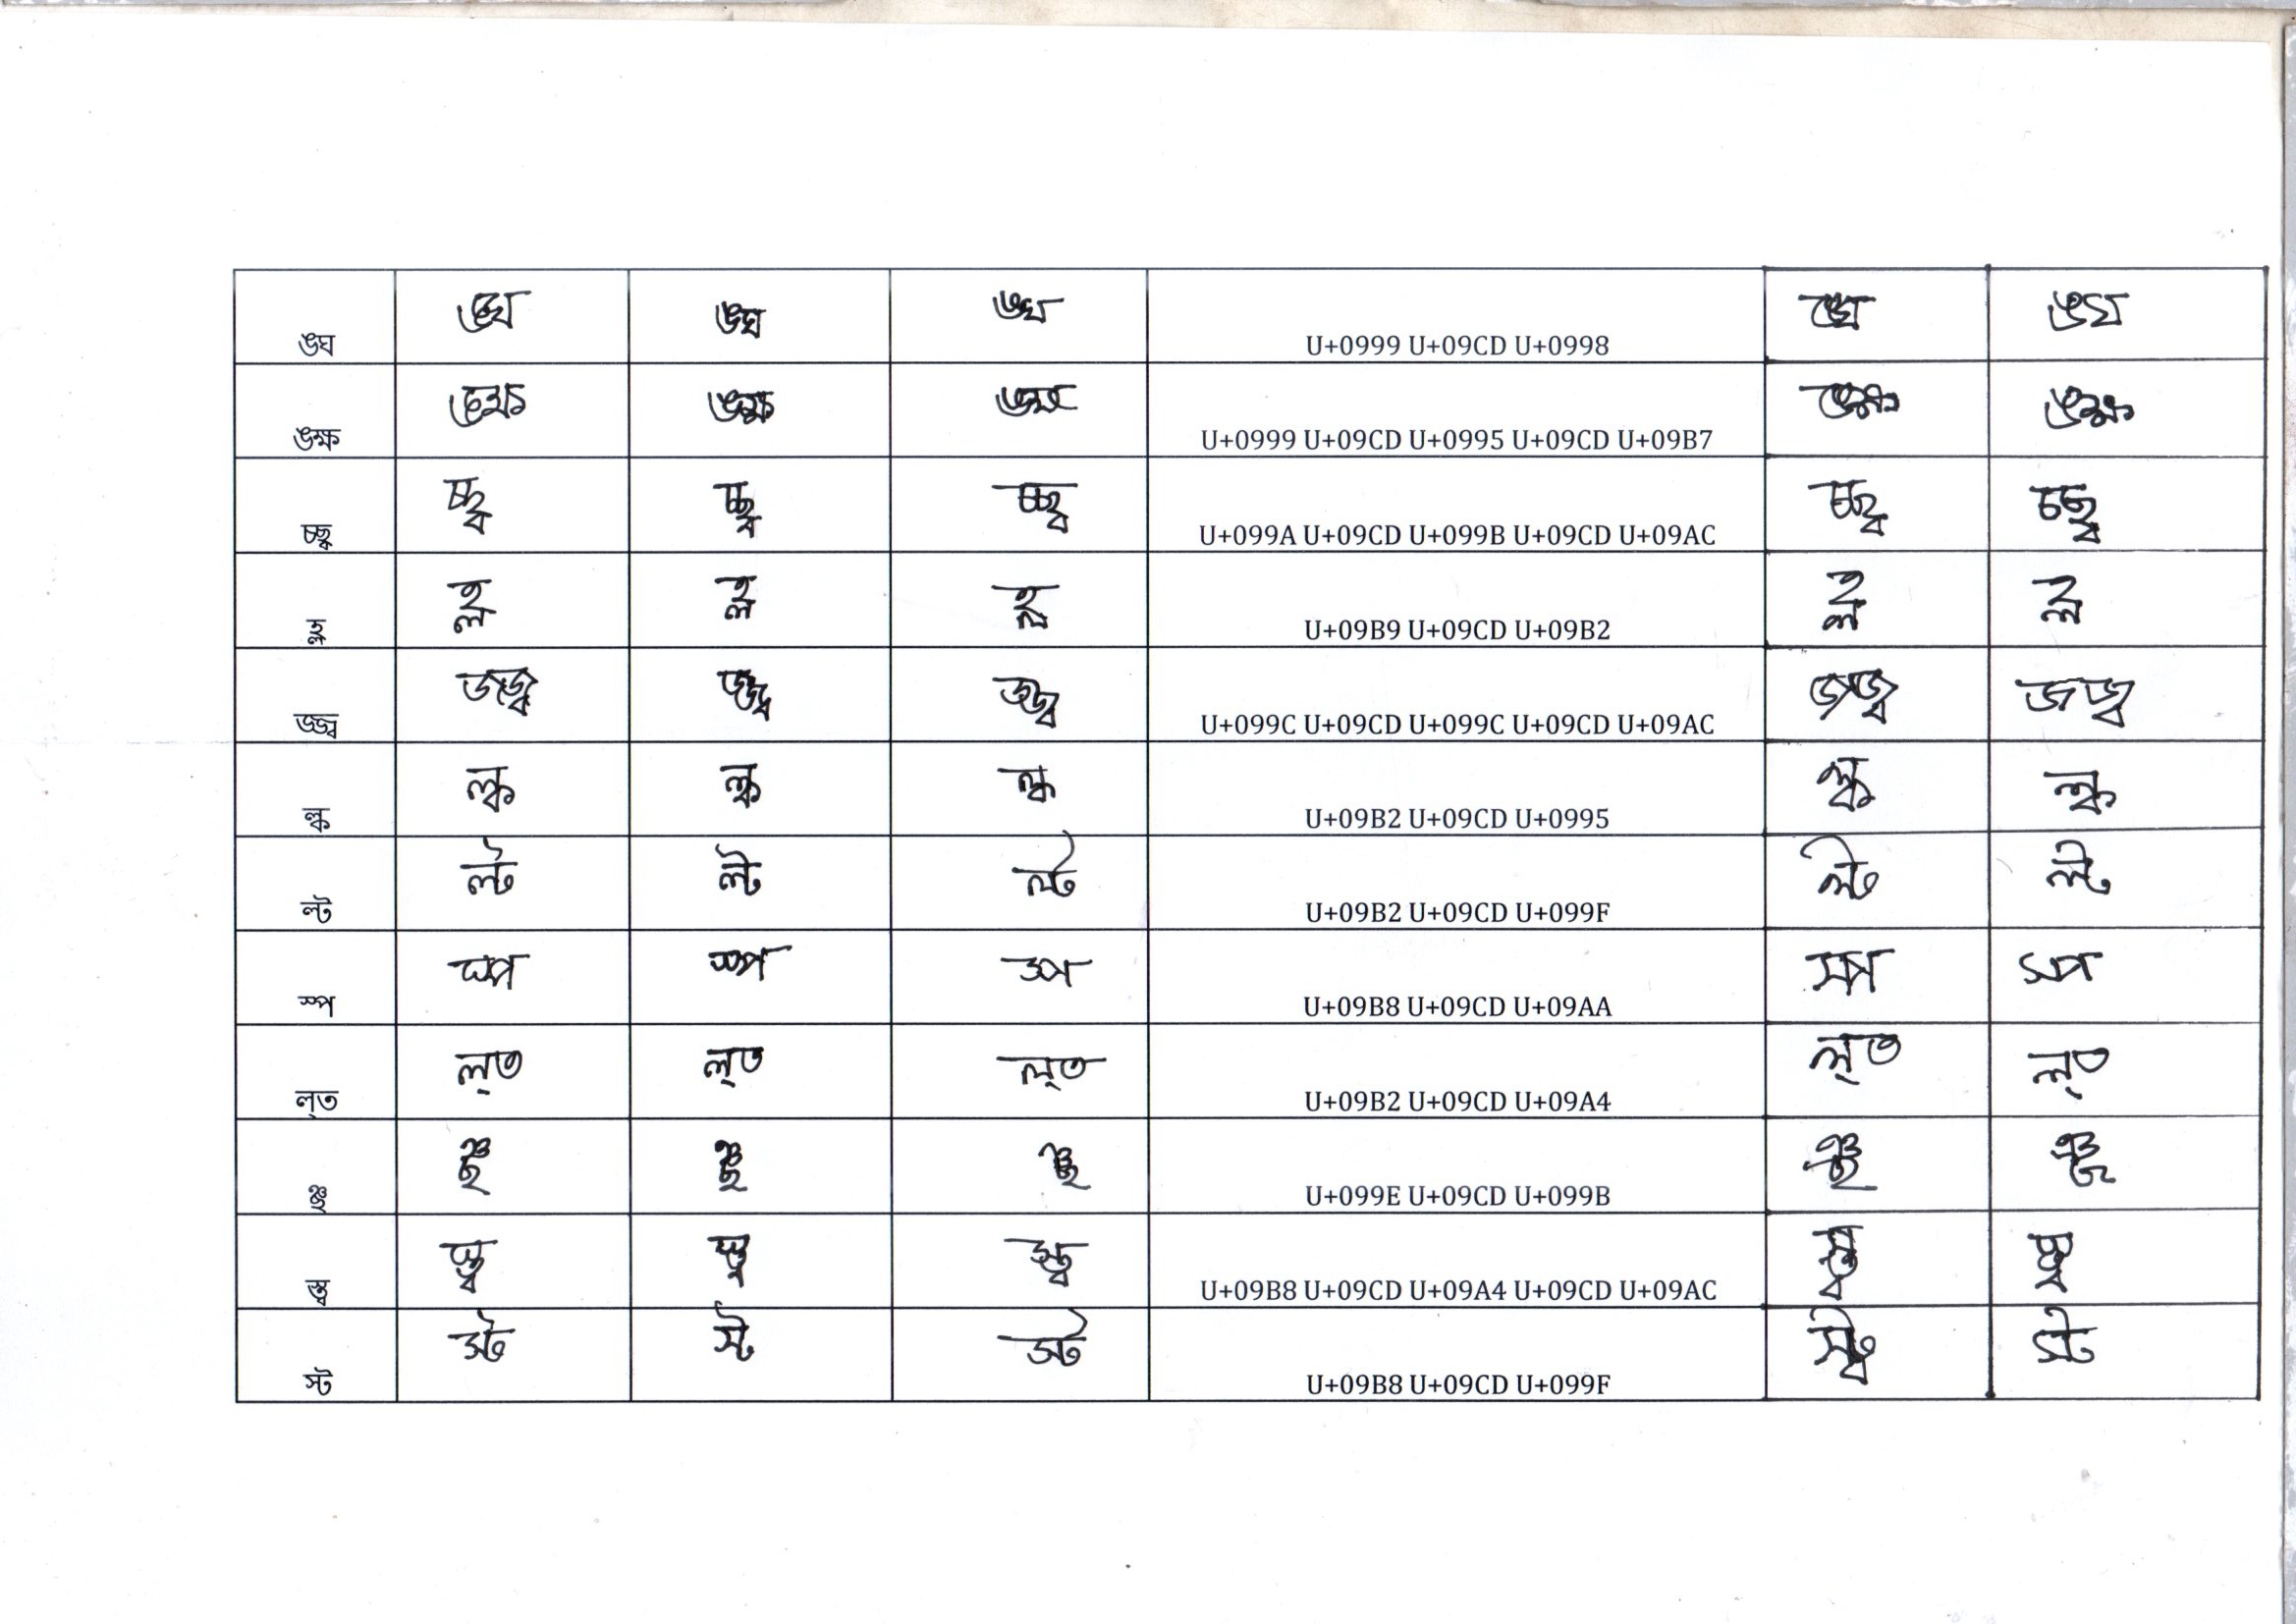 ঙ্ঘ ঙ্ঘ ঙ্ঘ ঙ্ঘ U+0999 U+09CD U+0998 ঙ্ঘ ঙ্ঘ
ঙ্ক্ষ ঙ্ক্ষ ঙ্ক্ষ ঙ্ক্ষ U+0999 U+09CD U+0995 U+09CD U+09B7 ঙ্ক্ষ ঙ্ক্ষ
চ্ছ্ব চ্ছ্ব চ্ছ্ব চ্ছ্ব U+099A U+09CD U+099B U+09CD U+09AC চ্ছ্ব চ্ছ্ব
হ্ল হ্ল হ্ল হ্ল U+09B9 U+09CD U+09B2 হ্ল হ্ল
জ্জ্ব জ্জ্ব জ্জ্ব জ্জ্ব U+099C U+09CD U+099C U+09CD U+09AC জ্জ্ব জ্জ্ব
ল্ক ল্ক ল্ক ল্ক U+09B2 U+09CD U+0995 ল্ক ল্ক
ল্ট ল্ট ল্ট ল্ট U+09B2 U+09CD U+099F ল্ট ল্ট
স্প স্প স্প স্প U+09B8 U+09CD U+09AA স্প স্প
ল্ত ল্ত ল্ত ল্ত U+09B2 U+09CD U+09A4 ল্ত ল্ত
ঞ্ছ ঞ্ছ ঞ্ছ ঞ্ছ U+099E U+09CD U+099B ঞ্ছ ঞ্ছ
স্ত্ব স্ত্ব স্ত্ব স্ত্ব U+09B8 U+09CD U+09A4 U+09CD U+09AC স্ত্ব স্ত্ব
স্ট স্ট স্ট স্ট U+09B8 U+09CD U+099F স্ট স্ট